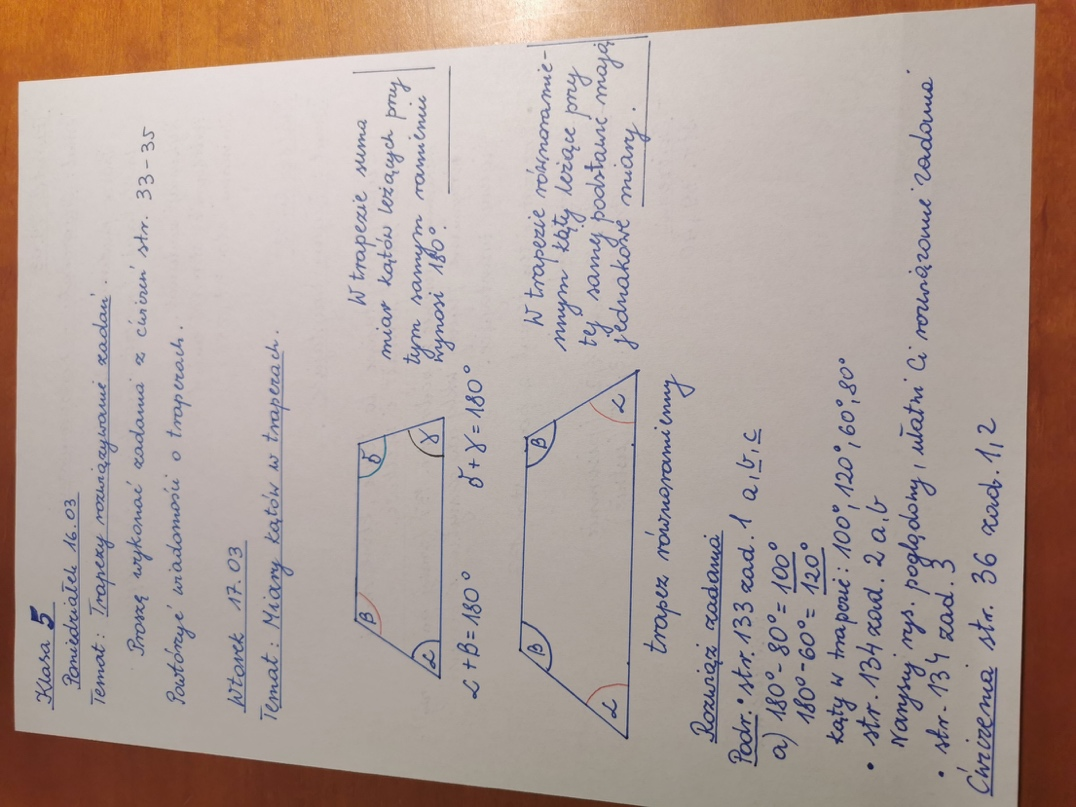 Klasa 5
Poniedziałek 16.03
Temat: Trapezy rozwiązywanie zadań.
Proszę wykonać zadania z ćwiczeń str. 33-35
Powtórzyć wiadomości o trapezach.
Wtorek 17.03
Temat: Miary kątów w trapezach.
β δ
α γ
α+β=180° δ+γ=180°
W trapezie suma
miar kątów leżących przy
tym samym ramieniu
wynosi 180°.
β β
α α
trapez równoramienny
W trapezie równoramie-
nnym kąty leżące przy
tej samej podstawie mają
jednakowe miary.
Rozwiąż zadania
Podr. • str. 133 zad. 1 a, b, c
a) 180°-80°=100°
180°-60°=120°
kąty w trapezie: 100°, 120°, 60°, 80°
• str. 134 zad. 2 a, b
Narysuj rys. poglądowy, ułatwi Ci rozwiązanie zadania
• str. 134 zad. 3
Ćwiczenia str. 36 zad. 1, 2